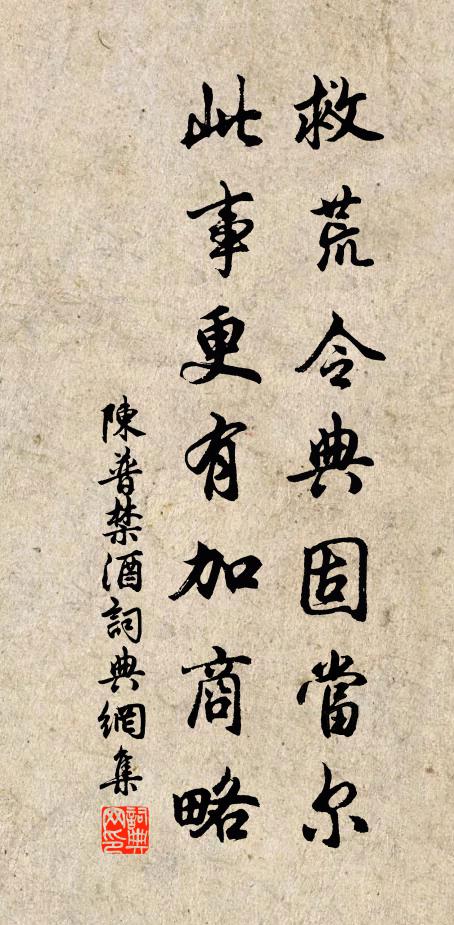 救荒令典固當尔
此事更有加商略
陳普禁酒詞典網集
詞典网印